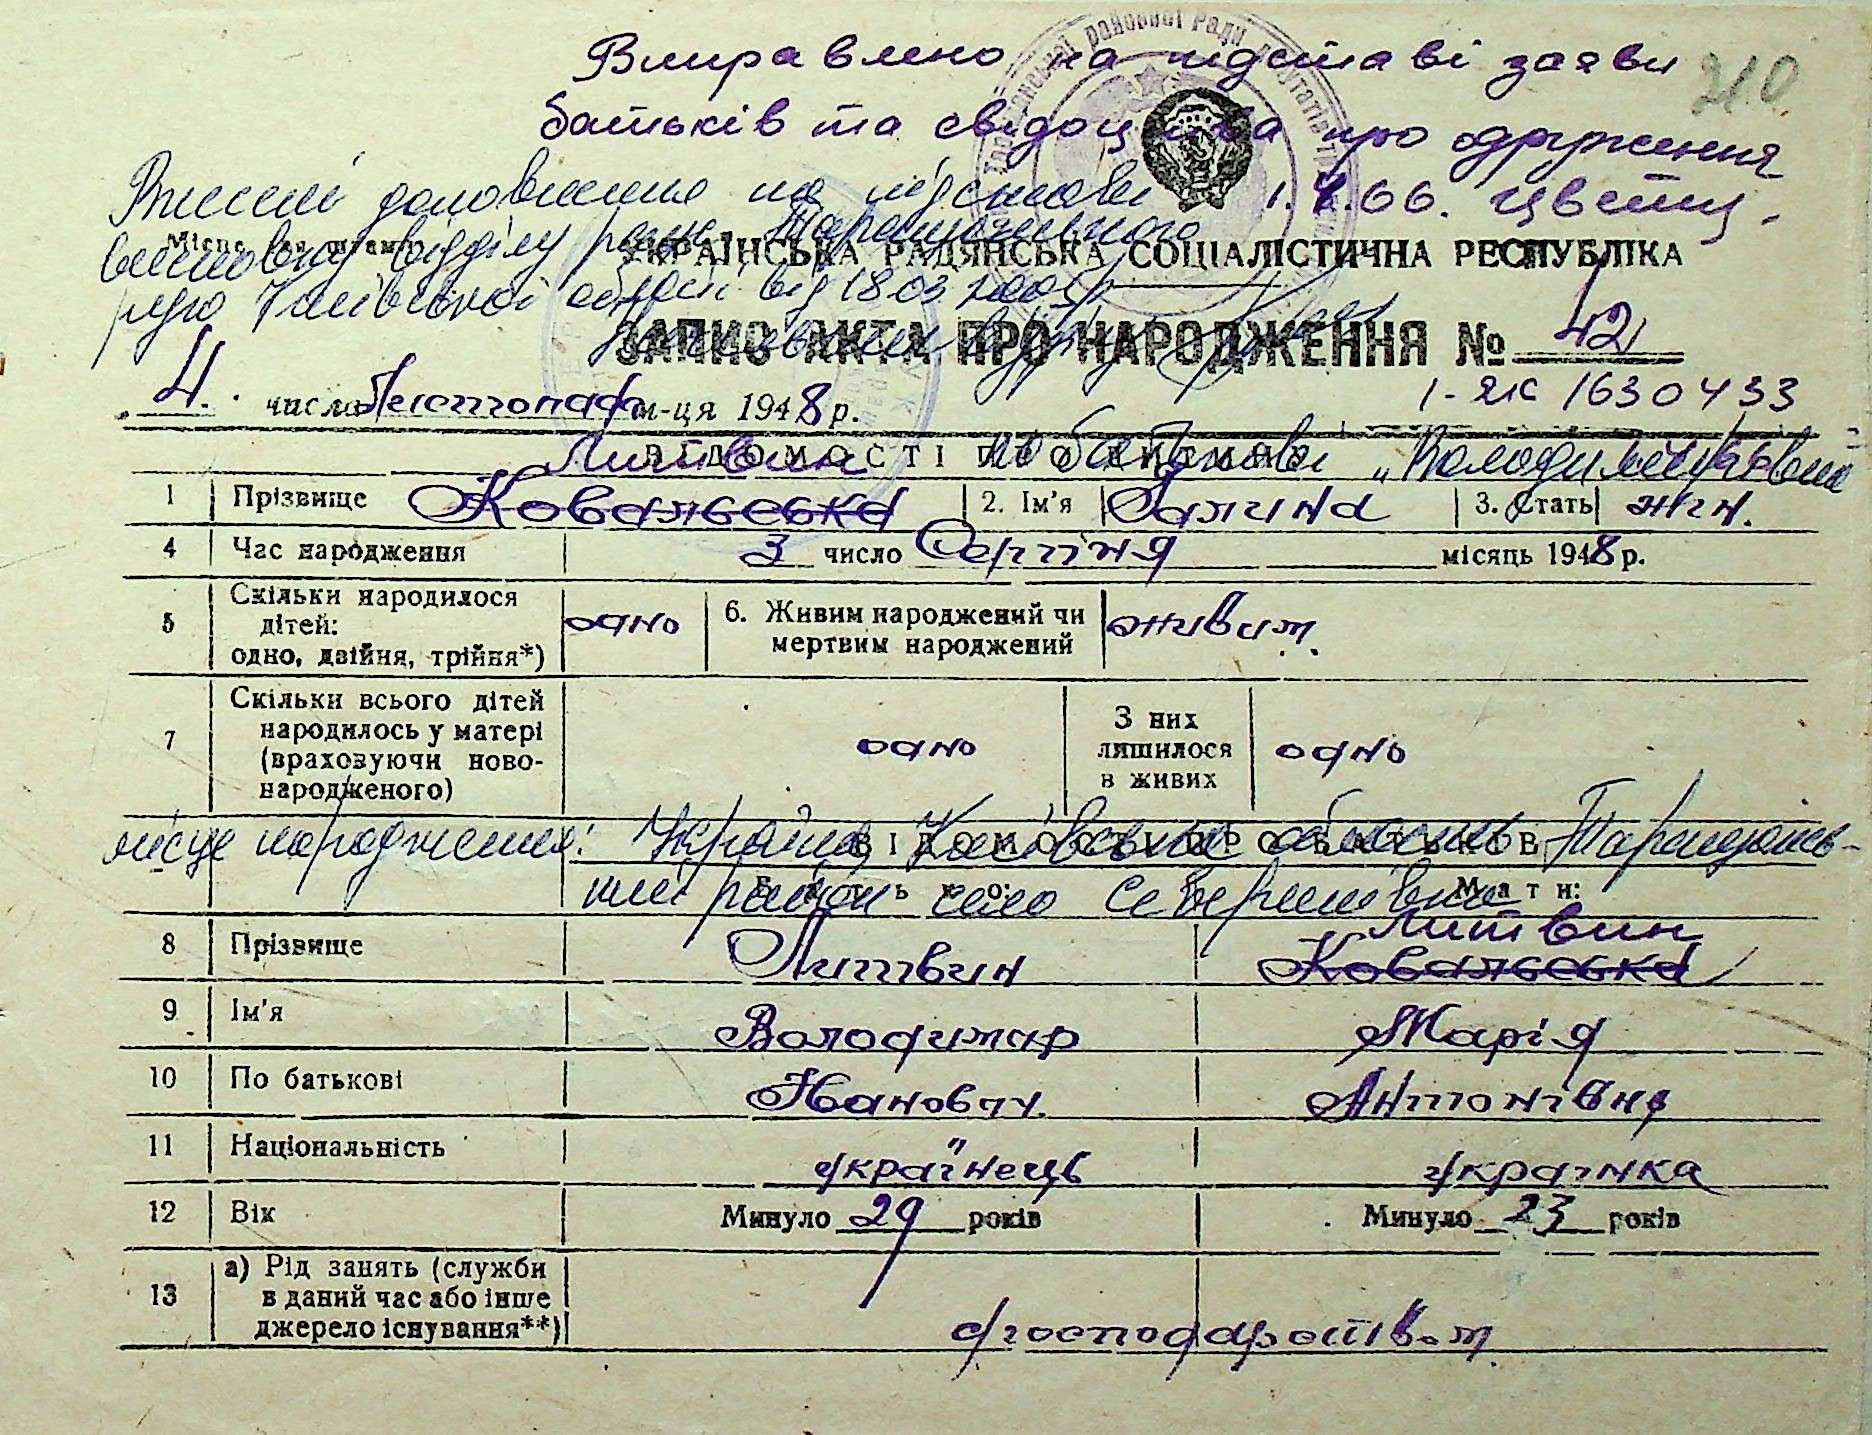 210
Виправлено на підставі заяви
батьків та свідоцтва про одруження
1.X.66. Цветц.
Внесені доповнення на підставі
висновку відділу рацс Таращанського
р-ну Київської області від 18.03.2005р
Місце для штампу
УКРАЇНСЬКА РАДЯНСЬКА СОЦІАЛІСТИЧНА РЕСПУБЛІКА
ЗАПИС АКТА ПРО НАРОДЖЕННЯ № 42
4. числа Листопада м-ця 1948 р.
1-ЯК 1630433
ВІДОМОСТІ ПРО ДИТИНУ
Литвин по батькові "Володимирівна"
1 Прізвище Ковальська 2. Ім'я Галина 3. Стать жін.
4 Час народження 3 число Серпня місяць 1948 р.
5 Скільки народилося дітей: одно, двійня, трійня*) одно 6. Живим народжений чи мертвим народжений живим.
7 Скільки всього дітей народилось у матері (враховуючи новонародженого) одно З них лишилося в живих одно
ВІДОМОСТІ ПРО БАТЬКІВ
місце народження: Україна, Київська область Таращансь-
кий район село Северинівка
Батько: Мати:
Литвин
8 Прізвище Литвин Ковальська
9 Ім'я Володимир Марія
10 По батькові Іванович Антонівна
11 Національність українець українка
12 Вік Минуло 29 років Минуло 23 років
13 а) Рід занять (служби в даний час або інше джерело існування**)